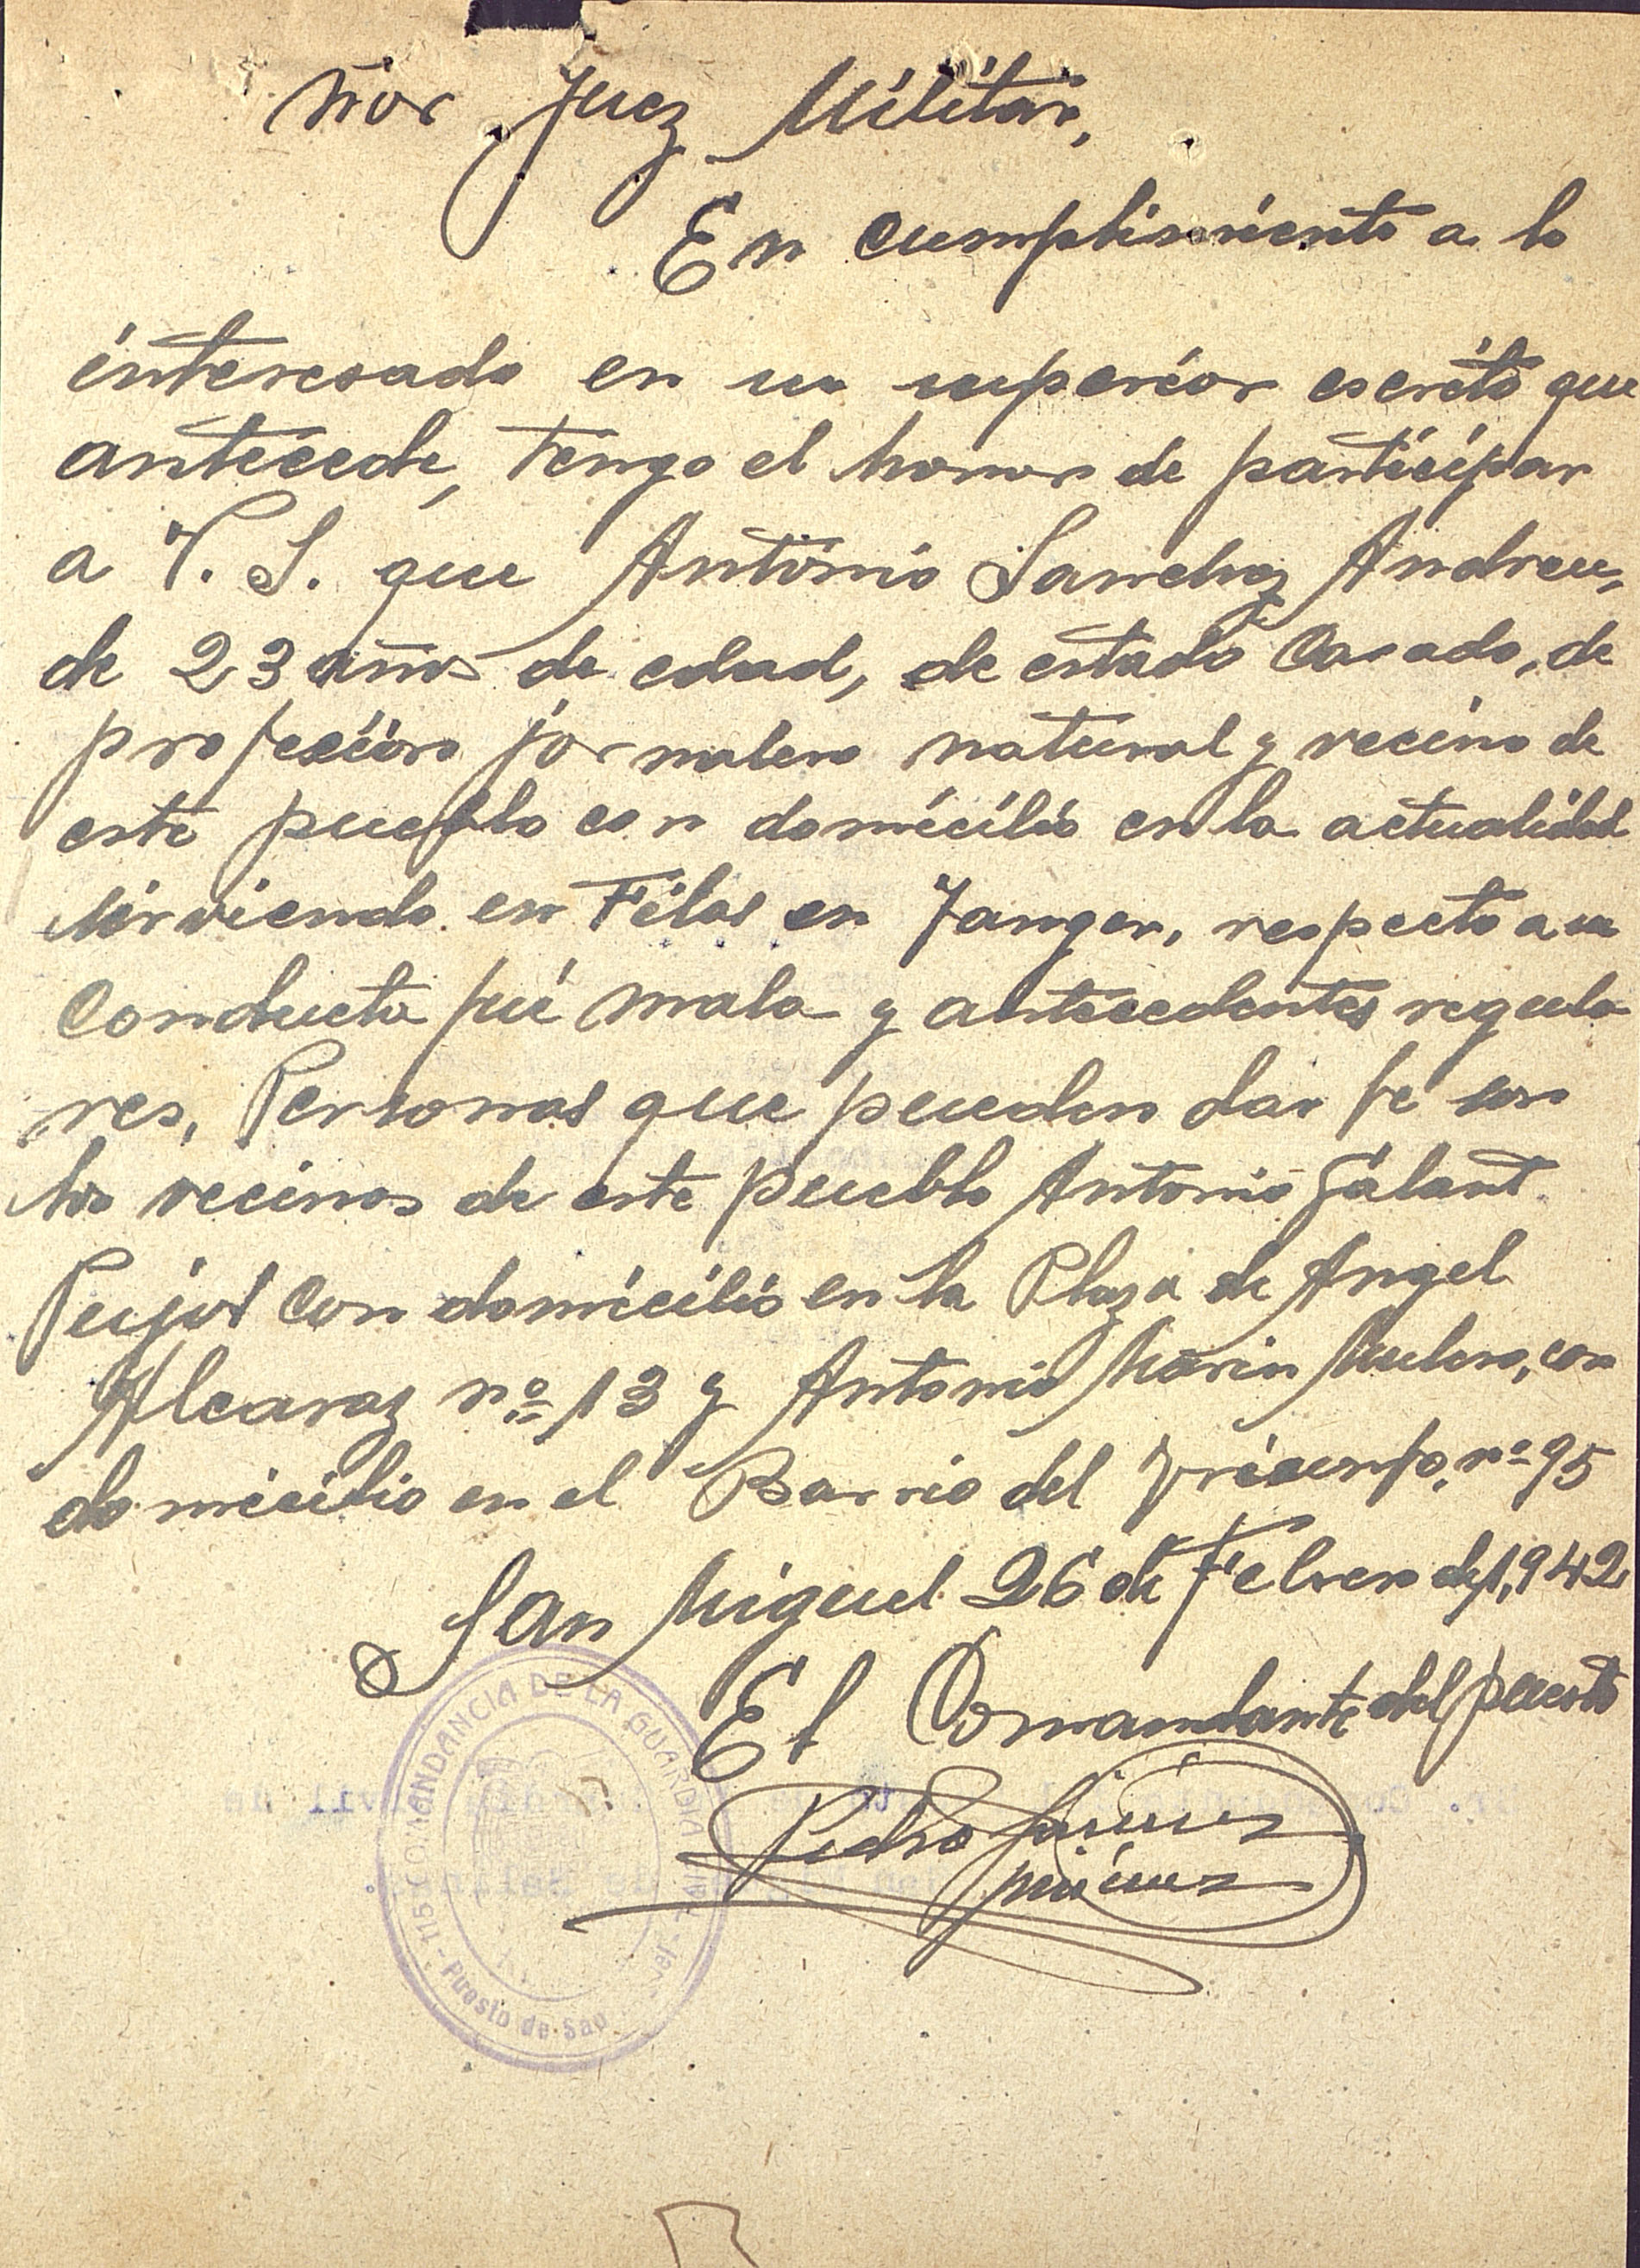 ñor Juez Militar,
En cumplimiento a lo
interesado en su superior escrito que
antecede, tengo el honor de participar
a V. S. que Antonio Sanchez Andreu,
de 23 años de edad, de estado Casado, de
profesiion jornalero natural y vecino de
este pueblo con domicilio en la actualidad
sirviendo en Filas en Tanger, respecto a su
Conducta fué mala y antecedentes regula
res, Personas que pueden dar fe son
los vecinos de este pueblo Antonio Galant
Pujol Con domicilio en la Plaza de Angel
Alcaraz nº 13 y Antonio Marin Mulero, con
domicilio en el Barrio del Triunfo, nº 95
San Miguel 26 de Febrero de 1,942
El Comandante del puesto
Pedro Jiménez
Jiménez
115 COMANDANCIA DE LA GUARDIA
Puesto de San